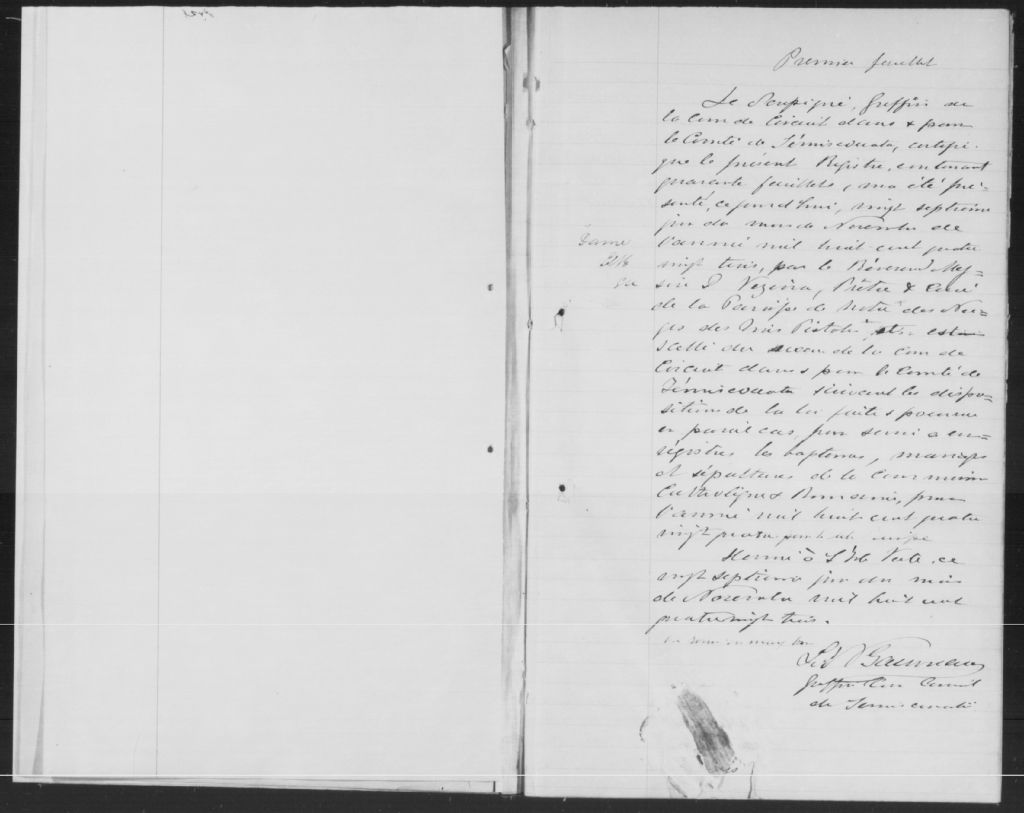 Premier feuillet
Le Soussigné, Greffier de
la Cour de Circuit dans & pour
le Comté de Témiscouata, certifie
que le présent Registre, contenant
quarante feuillets, m'a été pré-
senté, ce jourd'hui, vingt septième
jour du mois de Novembre de
l'année mil huit cent quatre
vingt trois, par le Révérend Mes-
sire D Vézina, Prêtre & Curé
de la Paroisse de Notre Dame des Nei-
ges des Trois Pistoles, et est
scellé du sceau de la Cour de
Circuit dans & pour le Comté de
Témiscouata suivant les dispo-
sitions de la loi faite & pourvue
en pareil cas, pour servir à en-
registrer les baptêmes, mariages
et sépultures de la Communion
Catholique & Romaine, pour
l'année mil huit cent quatre
vingt quatre
Donné à Isle Verte, ce
vingt septième jour du mois
de Novembre mil huit cent
quatre vingt trois.
Greffier Cour Circuit
de Témiscouata